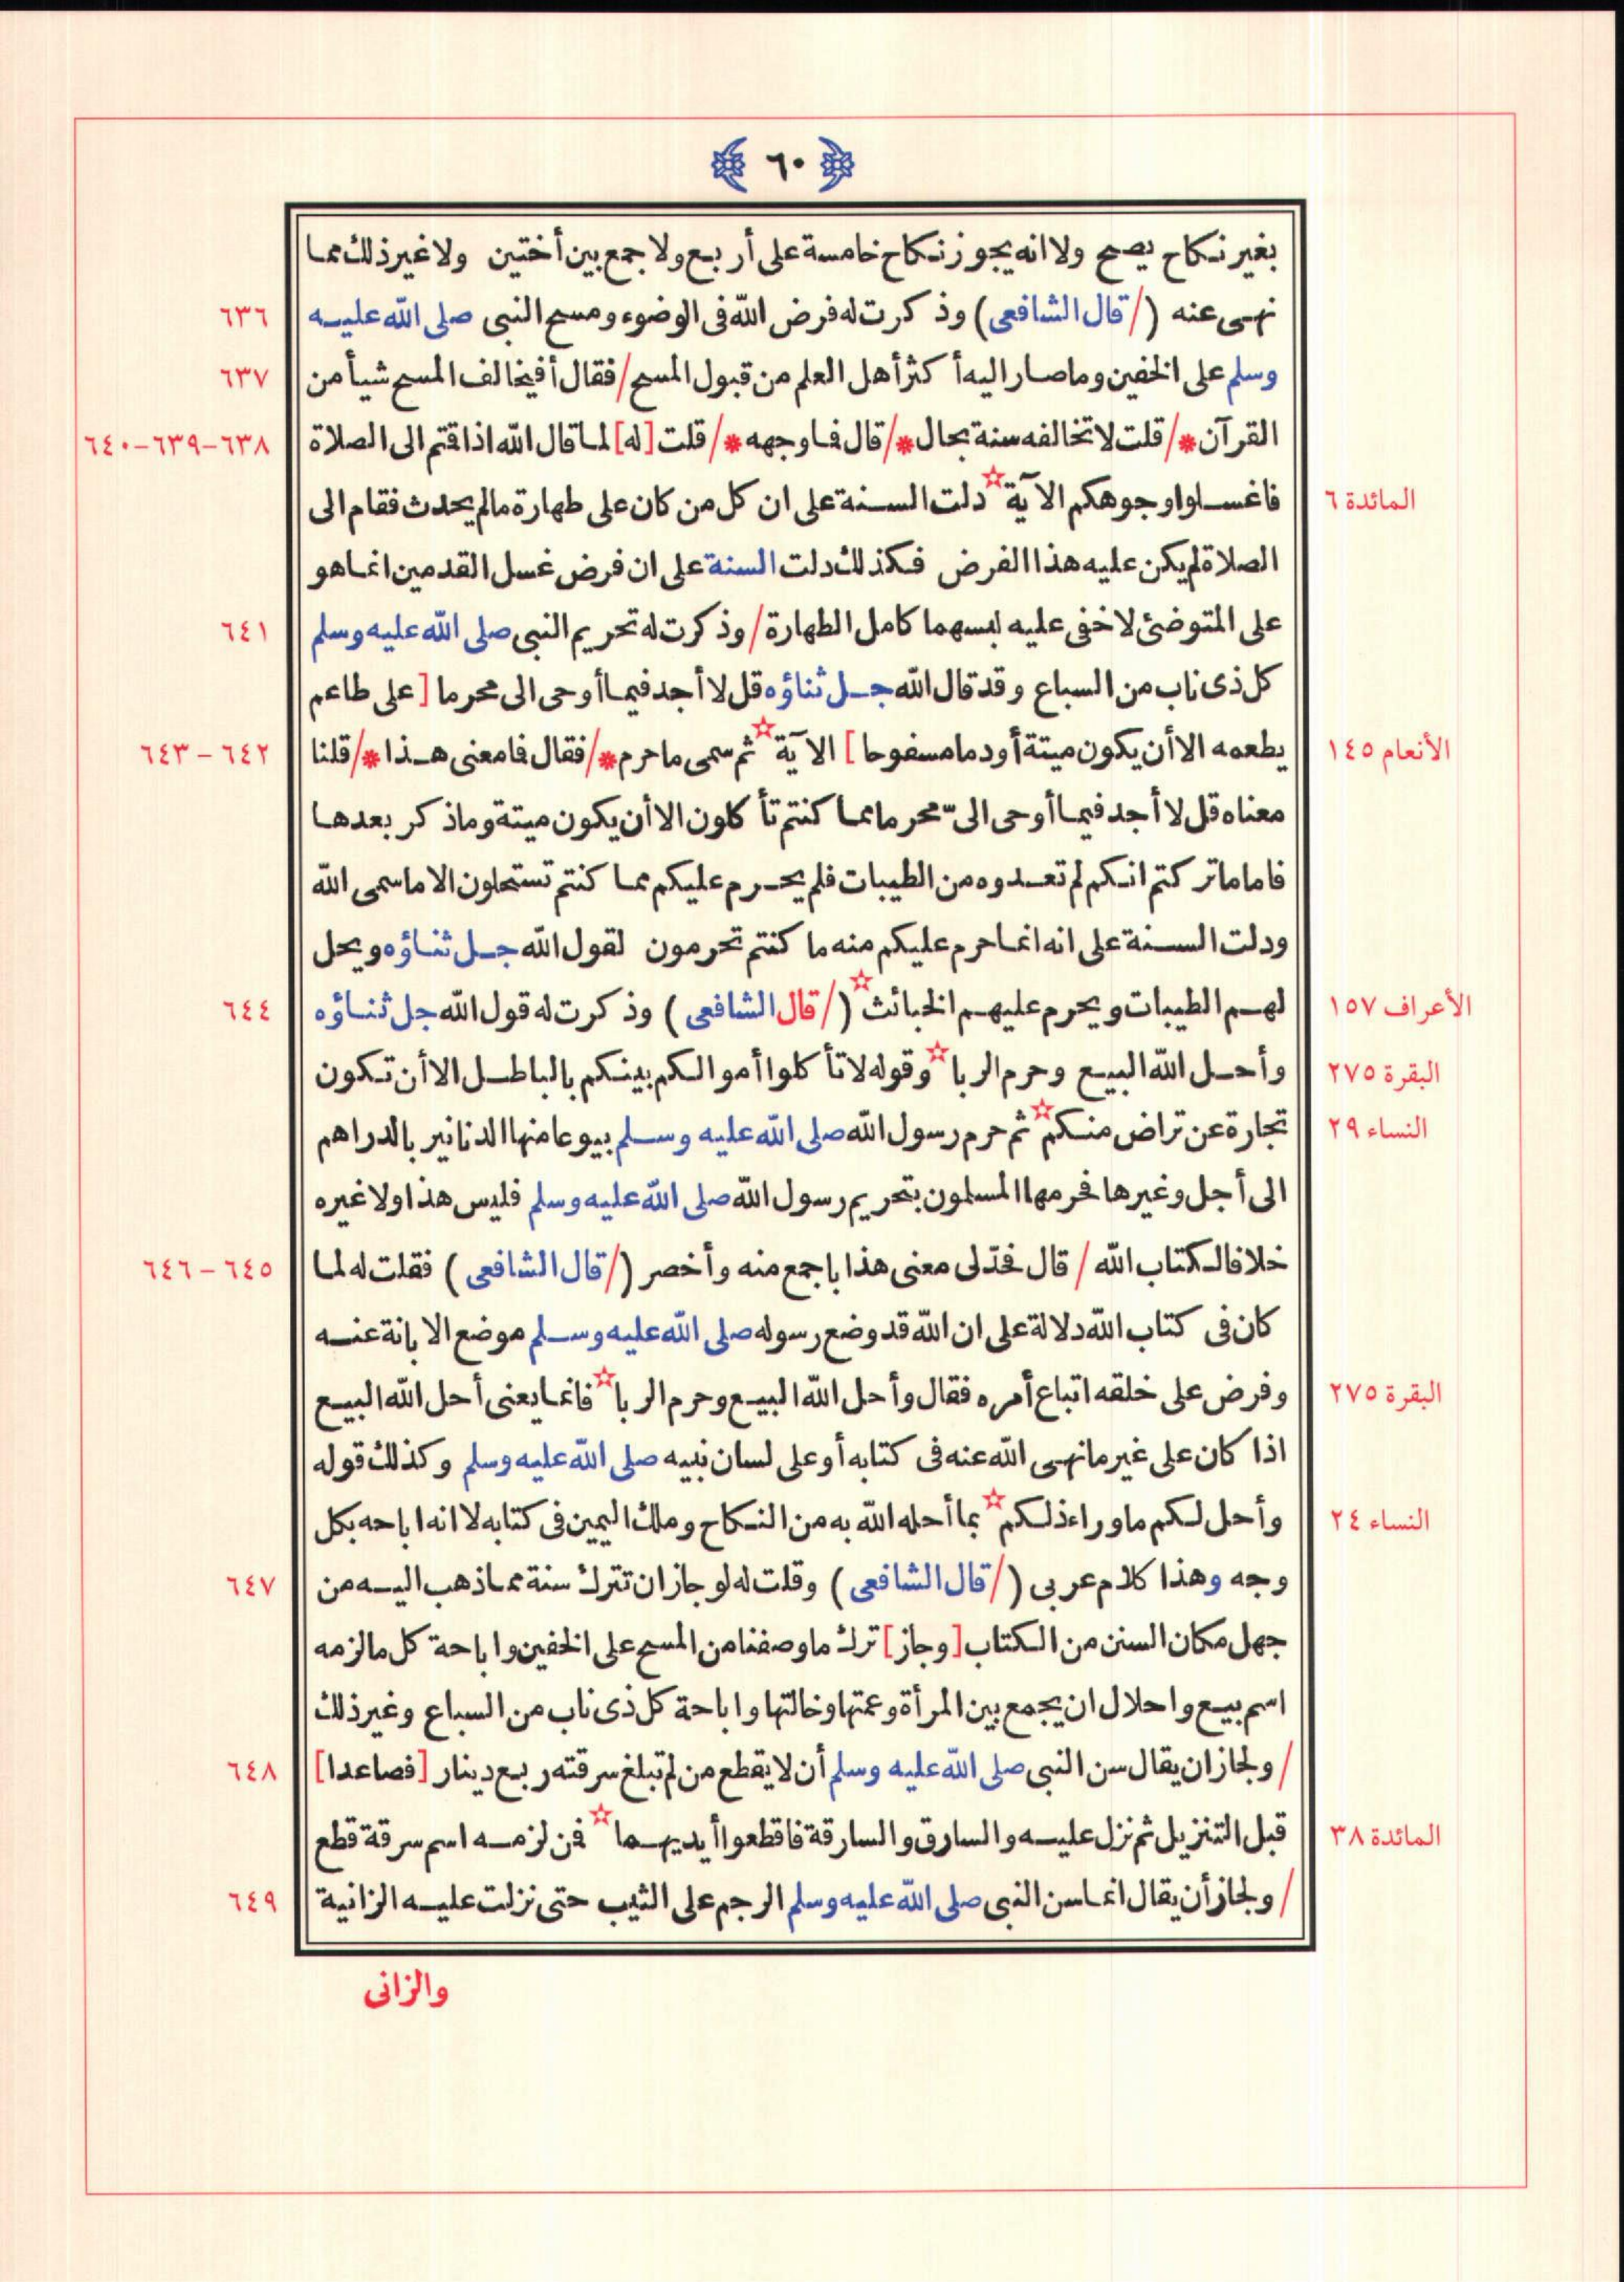 ٦٠
بغير نكاح يصح ولا انه يجوز نكاح خامسة على أربع ولا جمع بين أختين ولا غير ذلك مما
نهى عنه (/ قال الشافعى) وذكرت له فرض الله فى الوضوء ومسح النبى صلى الله عليه ٦٣٦
وسلم على الخفين وما صار اليه أكثر أهل العلم من قبول المسح / فقال أفيخالف المسح شيأ من ٦٣٧
القرآن * / قلت لا تخالفه سنة بحال * / قال فما وجهه * / قلت [له] لما قال الله اذا قتم الى الصلاة ٦٣٨-٦٣٩-٦٤٠
المائدة ٦ فاغسلوا وجوهكم الآية☆ دلت السنة على ان كل من كان على طهارة مالم يحدث فقام الى
الصلاة لم يكن عليه هذا الفرض فكذلك دلت السنة على ان فرض غسل القدمين انما هو
على المتوضئ لا خفى عليه لبسهما كامل الطهارة / وذكرت له تحريم النبى صلى الله عليه وسلم ٦٤١
كل ذى ناب من السباع وقد قال الله جل ثناؤه قل لا أجد فيما أوحى الى محرما [على طاعم
الأنعام ١٤٥ يطعمه الا أن يكون ميتة أو دما مسفوحا] الآية☆ ثم سمى ما حرم * / فقال فما معنى هذا * / قلنا ٦٤٢ - ٦٤٣
معناه قل لا أجد فيما أوحى الىّ محرما مما كنتم تأكلون الا أن يكون ميتة وما ذكر بعدها
فاما ما تركتم انكم لم تعدوه من الطيبات فلم يحرم عليكم مما كنتم تستحلون الا ما سمى الله
ودلت السنة على انه انما حرم عليكم منه ما كنتم تحرمون لقول الله جل ثناؤه ويحل
الأعراف ١٥٧ لهم الطيبات ويحرم عليهم الخبائث☆ (/ قال الشافعى) وذكرت له قول الله جل ثناؤه ٦٤٤
البقرة ٢٧٥ وأحل الله البيع وحرم الربا☆ وقوله لا تأكلوا أموالكم بينكم بالباطل الا أن تكون
النساء ٢٩ تجارة عن تراض منكم☆ ثم حرم رسول الله صلى الله عليه وسلم بيوعا منها الدنانير بالدراهم
الى أجل وغيرها فحرمها المسلمون بتحريم رسول الله صلى الله عليه وسلم فليس هذا ولا غيره
خلافا لكتاب الله / قال فحدّ لى معنى هذا باجمع منه وأخصر (/ قال الشافعى) فقلت له لما ٦٤٥ - ٦٤٦
كان فى كتاب الله دلالة على ان الله قد وضع رسوله صلى الله عليه وسلم موضع الابانة عنه
البقرة ٢٧٥ وفرض على خلقه اتباع أمره فقال وأحل الله البيع وحرم الربا☆ فانما يعنى أحل الله البيع
اذا كان على غير ما نهى الله عنه فى كتابه أو على لسان نبيه صلى الله عليه وسلم وكذلك قوله
النساء ٢٤ وأحل لكم ما وراء ذلكم☆ بما أحله الله به من النكاح وملك اليمين فى كتابه لا انه اباحه بكل
وجه وهذا كلام عربى (/ قال الشافعى) وقلت له لو جاز ان تترك سنة مما ذهب اليه من ٦٤٧
جهل مكان السنن من الكتاب [وجاز] ترك ما وصفنا من المسح على الخفين واباحة كل ما لزمه
اسم بيع واحلال ان يجمع بين المرأة وعمتها وخالتها واباحة كل ذى ناب من السباع وغير ذلك
/ ولجاز ان يقال سن النبى صلى الله عليه وسلم أن لا يقطع من لم تبلغ سرقته ربع دينار [فصاعدا] ٦٤٨
المائدة ٣٨ قبل التنزيل ثم نزل عليه والسارق والسارقة فاقطعوا أيديهما☆ فمن لزمه اسم سرقة قطع
/ ولجاز أن يقال انما سن النبى صلى الله عليه وسلم الرجم على الثيب حتى نزلت عليه الزانية ٦٤٩
والزانى